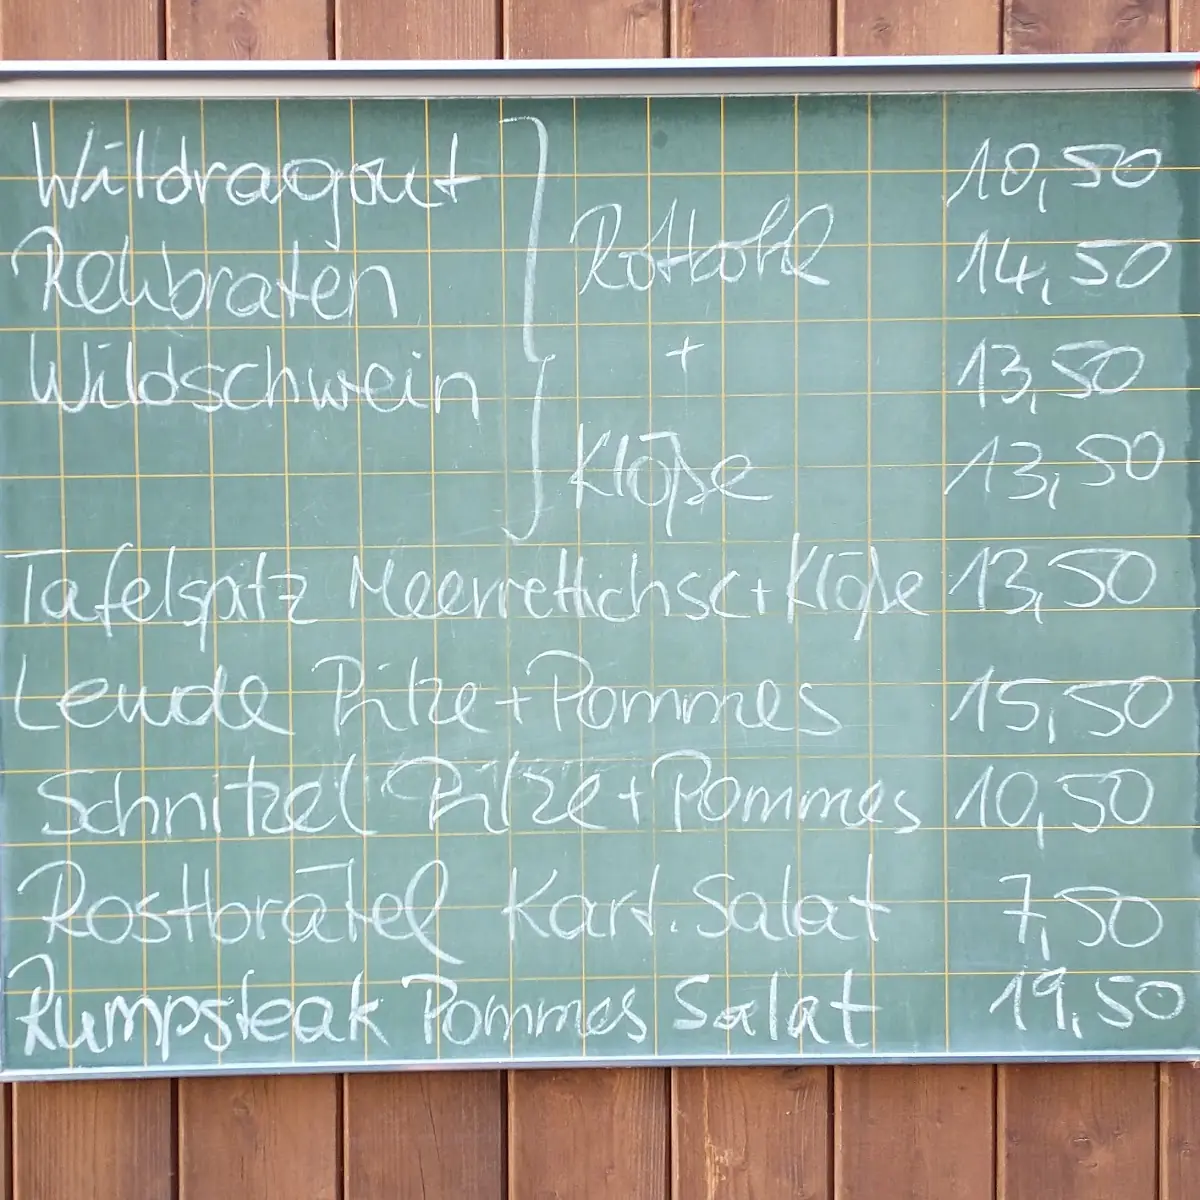 Wildragout 10,50
Rehbraten Rotkohl 14,50
Wildschwein + 13,50
Klöße 13,50
Tafelspitz Meerrettichsc + Klöße 13,50
Lende Pilze + Pommes 15,50
Schnitzel Pilze + Pommes 10,50
Rostbrätel Kart. Salat 7,50
Rumpsteak Pommes Salat 19,50